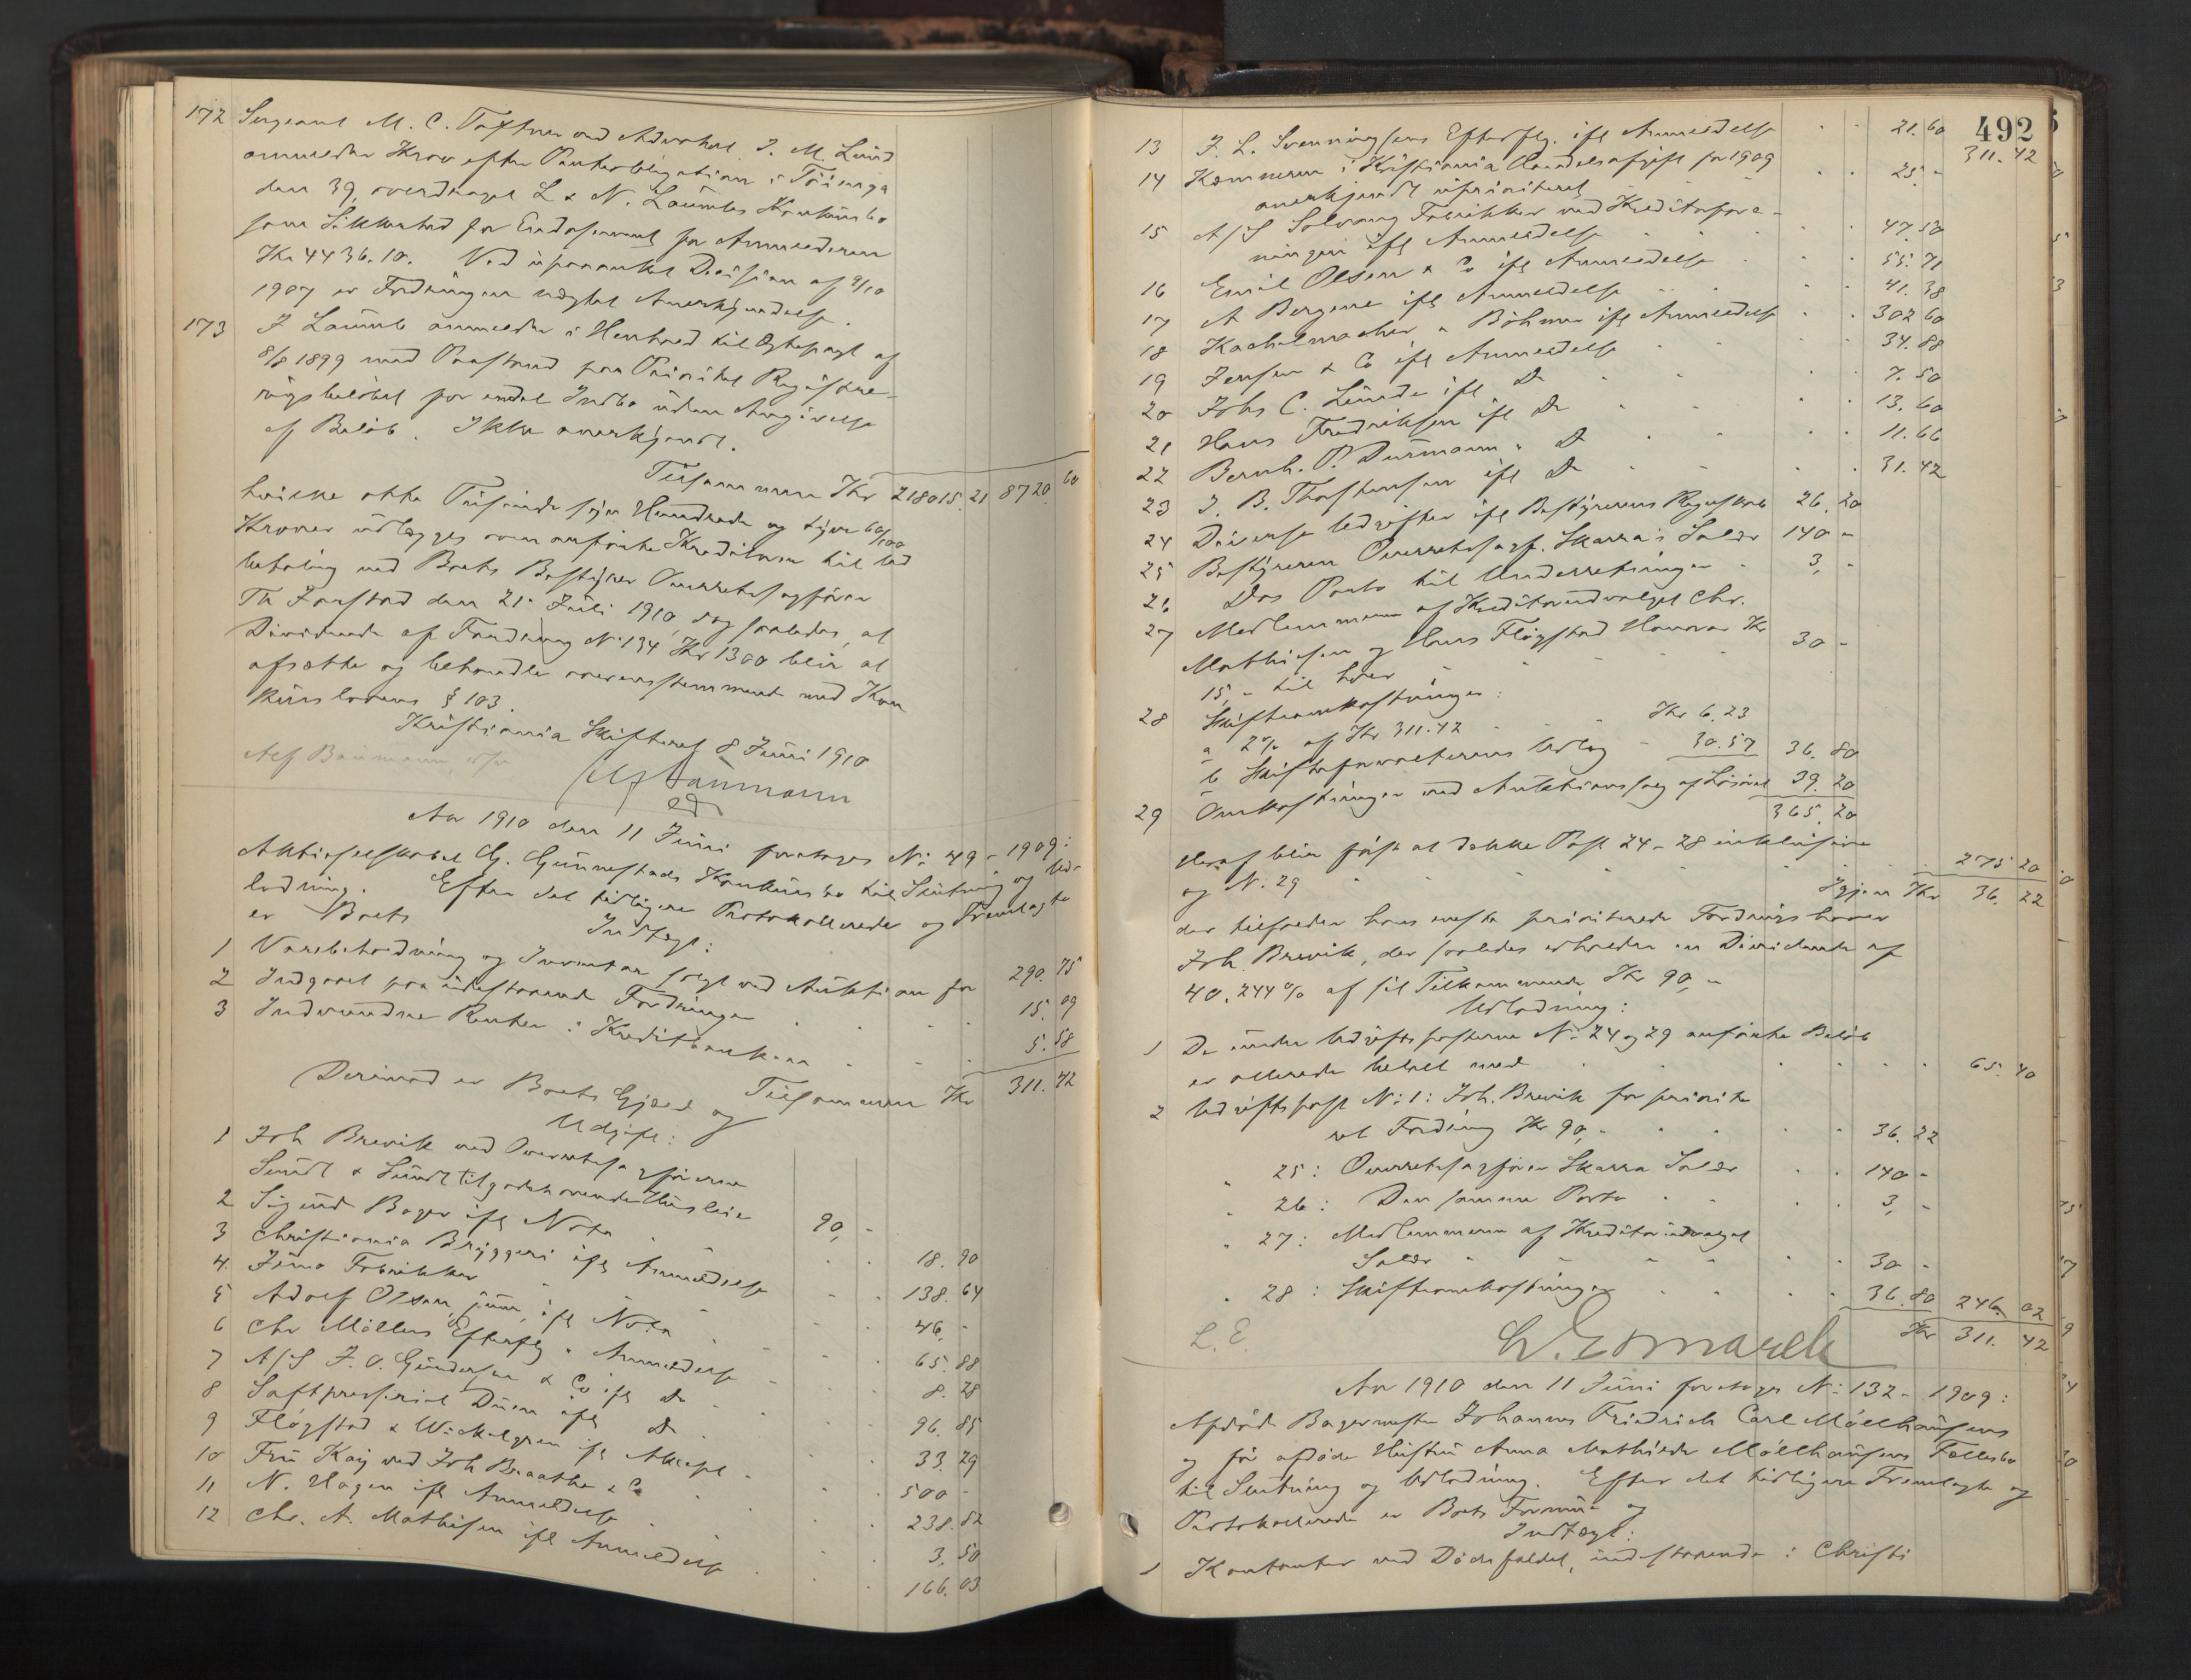 172 Sergeant M. C. Taftner ved Advokat J. M. Lund
anmelder Krav efter Panteobligation i Töiengа
den 39, overdraget L & N. Laumbs Konkursbo
som Sikkerhed for Endossement for Anmelderen
Kr. 4436.10. Ved upaaanket Decision af 9/10
1907 er Fordringen nægtet Anerkjendelse.
173 J Laumb anmelder i Henhold til Ægtepagt af
8/8 1899 med Paastand paa Prioritet
for endel Indbo uden Angivelse
af Beløb. Ikke anerkjendt.
Tilsammen Kr 218015.21 8720.60
hvilke otte Tusinde syv Hundrede og tyve 60/100
Kroner udlægges ovenanførte Kreditorer til Ud
betaling ved Boets Bestyrer Overretssagfører
Th Jarstad den 21. Juli 1910, dog saaledes, at
Dividende af Fordring No 134 Kr 1300 blir at
afsætte og behandle overensstemmende med Kon
kurslovens § 103.
Kristiania Skifteret 8 Juni 1910
Alf Baumann
Alf Baumann
ed
Aar 1910 den 11 Juni foretoges No 49 - 1909:
Aktieselskabet G. Gunnestads Konkursbo til Slutning og Ud-
lodning. Efter det tidligere Protokollerede og Fremlagte
er Boets
Indtægt:
1 Varebeholdning og Inventar solgt ved Auktion for 290.75
2 Indgaaet paa udestaaende Fordringer 15.09
3 Indvundne Renter i Kreditbanken 5.58
Tilsammen Kr 311.42
Derimod er Boets Gjæld og
Udgift:
1 Joh Brevik ved Overretssagførerne
Sundt & Sundt tilgodehavende Husleie 90,-
2 Sigurd Bager ifl Nota 18.90
3 Christiania Bryggeri ifl Anmeldelse 138.64
4 Juno Fabrikker 46.-
5 Adolf Olsen, jun, ifl Nota 65.88
6 Chr Möllers Efterflg " Anmeldelse 8.28
7 A/S J. O. Gundersen & Co ifl Do 96.85
8 Saftpresseriet Duen ifl Do 33.29
9 Fløgstad & Wickelgren ifl Aksept 500 -
10 Fru Kaij ved Joh Braathe & Co 238.82
11 N. Hagen ifl Anmeldelse 3.50
12 Chr. A. Mathisen ifl Anmeldelse 166.03
492
311.42
13 J. L. Svenningsens Efterflg. ifl Anmeldelse 21.60
14 Kæmneren i Kristiania Handelsafgift for 1909
anerkjendt uprioriteret 25.-
15 A/S Solvang Fabrikker ved Kreditorfore-
ningen ifl Anmeldelse 47.50
16 Emil Olsen & Co ifl Anmeldelse 55.71
17 A Bergene ifl Anmeldelse 41.38
18 Kachelmacher & Böhmer ifl Anmeldelse 302 60
19 Jensen & Co ifl Anmeldelse 34.88
20 Johs C. Lunde ifl Do 7.50
21 Hans Fredriksen ifl Do 13.60
22 Bernh. P. Durmann " Do 11.66
23 J. B. Thostensen ifl Do 31.42
24 Diverse Udgifter ifl Bestyrerens Regnskab 26.20
25 Bestyreren Overretssagf. Skarra's Salær 140 -
26 Dos Porto til Underretninger 3,-
27 Medlemmerne af Kreditorudvalget Chr.
Mathisen og Hans Fløgstad Honorar Kr
15,- til hver 30 -
28 Skifteomkostninger:
a 2% af Kr 311.42 Kr 6.23
b Skifteforvalterens Udlæg 30.57 36.80
29 Omkostninger ved Auktionssalg af Løsøret 39.20
365.20
Heraf blir først at dække Post 24 - 28 inklusive
og No. 29 275 20
Igjen Kr 36.22
der tilfalder boets eneste prioriterede Fordringshaver
Joh. Brevik, der saaledes erholder en Dividende af
40.244% af sit Tilkommende Kr 90,-
Udlodning:
1 De under Udgiftsposterne No 24 og 29 anførte Beløb
er allerede betalt med 65.40
2 Udgiftspost No 1: Joh. Brevik for priorite
ret Fordring Kr 90,- 36.22
" 25: Overretssagfører Skarra Salær 140 -
" 26: Den samme Porto 3,-
" 27: Medlemmerne af Kreditorudvalget
Salær 30 -
" 28: Skifteomkostninger 36.80 246.02
Kr 311.42
L. E.
L. Esmarch
Aar 1910 den 11 Juni foretoges No 132 - 1909:
Afdøde Bagermester Johannes Friedrich Carl Möllhausens
og før afdøde Hustru Anna Mathilde Möllhausens Fællesbo
til Slutning og Udlodning. Efter det tidligere Fremlagte og
Protokollerede er Boets Formue og
Indtægt:
1 Kontanter ved Dødsfaldet, indestaaende i Christi